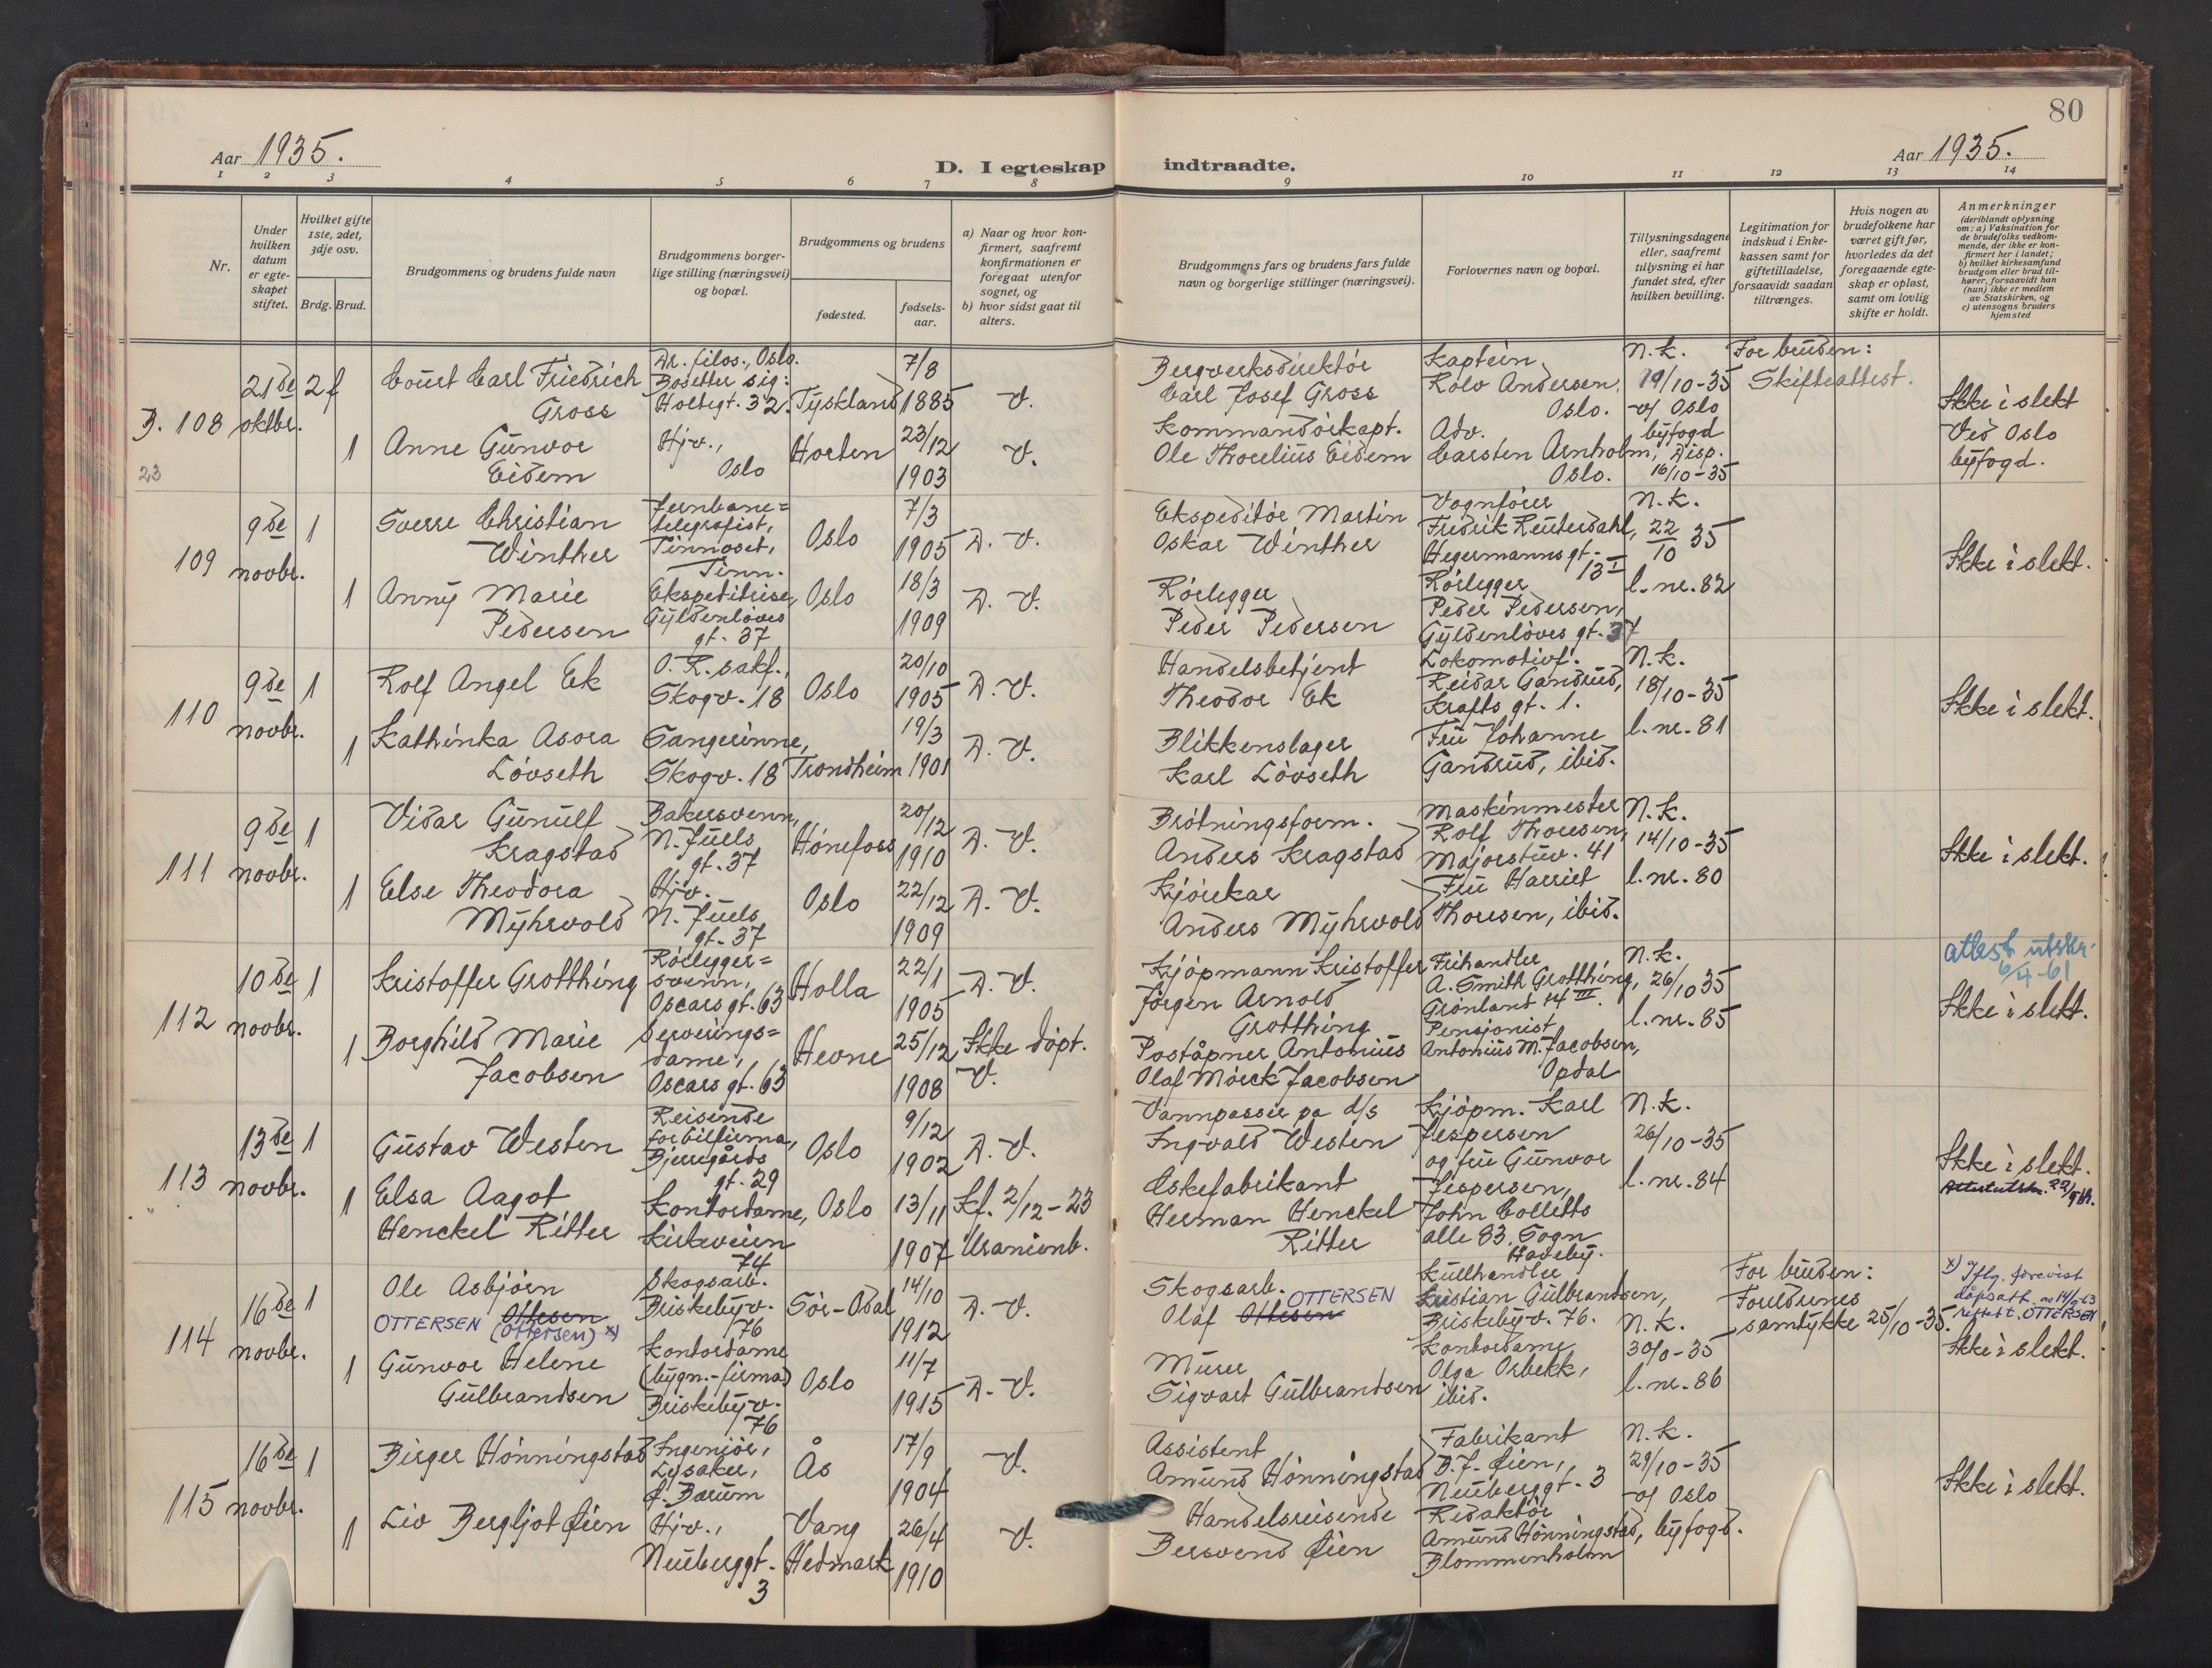 80
Aar 1935.
D. I egteskap indtraadte.
Aar 1935.
1 2 3 4 5 6 7 8 9 10 11 12 13 14
Nr.
Under hvilken datum er egteskapet stiftet.
Hvilket gifte 1ste, 2det, 3dje osv.
Brdg. Brud.
Brudgommens og brudens fulde navn
Brudgommens borgerlige stilling (næringsvei) og bopæl.
Brudgommens og brudens
fødested.
fødselsaar.
a) Naar og hvor konfirmert, saafremt konfirmationen er foregaat utenfor sognet, og
b) hvor sidst gaat til alters.
Brudgommens fars og brudens fars fulde navn og borgerlige stillinger (næringsvei).
Forlovernes navn og bopæl.
Tillysningsdagene eller, saafremt tillysning ei har fundet sted, efter hvilken bevilling.
Legitimation for indskud i Enkekassen samt for giftetilladelse, forsaavidt saadan tiltrænges.
Hvis nogen av brudefolkene har været gift før, hvorledes da det foregaaende egteskap er opløst, samt om lovlig skifte er holdt.
Anmerkninger
(deriblandt oplysning om: a) Vaksination for de brudefolks vedkommende, der ikke er konfirmert her i landet; b) hvilket kirkesamfund brudgom eller brud tilhører, forsaavidt han (hun) ikke er medlem av Statskirken, og c) utensogns bruders hjemsted
B. 108
23
21de oktbr.
2 f
Court Carl Friedrich Gross
Dr. filos., Oslo.
Bosetter sig:
Holtegt. 32.
Tyskland
7/8 1885
V.
Bergverksdirektør
Carl Josef Gross
Kaptein
Rolv Andersen,
Oslo.
N.k.
19/10-35
v/ Oslo
byfogd
For bruden:
Skifteattest.
Ikke i slekt
Ved Oslo
byfogd.
1
Anne Gunvor
Eidem
Hjv.,
Oslo
Horten
23/12 1903
V.
Kommandørkapt.
Ole Thorelius Eidem
Adv.
Carsten Arnholm,
Oslo.
Disp.
16/10-35
109
9de novbr.
1
Sverre Christian
Winther
Jernbane=
telegrafist,
Tinnoset,
Tinn.
Oslo
7/3 1905
D. V.
Ekspeditør Martin
Oskar Winther
Vognfører
Fredrik Reuterdahl,
Hegermannsgt.
13 I
N.k.
22/10 35
l.nr. 82
Ikke i slekt.
1
Anny Marie
Pedersen
Ekspeditrise,
Gyldenløves
gt. 37
Oslo
18/3 1909
D. V.
Rørlegger
Peder Pedersen
Rørlegger
Peder Pedersen,
Gyldenløves gt. 37
110
9de novbr.
1
Rolf Angel Ek
O.R.sakf.,
Skogv. 18
Oslo
20/10 1905
D. V.
Handelsbetjent
Theodor Ek
Lokomotivf.
Reidar Gandrud,
Krafts gt. 1.
N.k.
18/10-35
l.nr. 81
Ikke i slekt.
1
Kathinka Asora
Løvseth
Sangerinne,
Skogv. 18
Trondheim
19/3 1901
D. V.
Blikkenslager
Karl Løvseth
Fru Johanne
Gandrud, ibid.
111
9de novbr.
1
Vidar Gunulf
Kragstad
Bakersvenn,
N. Juels
gt. 37
Hønefoss
20/12 1910
D. V.
Brøtningsform.
Anders Kragstad
Maskinmester
Rolf Thoresen,
Majorstuv. 41
N.k.
14/10-35
l.nr. 80
Ikke i slekt.
1
Else Theodora
Myhrvold
Hjv.
N. Juels
gt. 37
Oslo
22/12 1909
D. V.
Kjørekar
Anders Myhrvold
Fru Harriet
Thoresen, ibid.
112
10de novbr.
1
Kristoffer Grotthing
Rørlegger=
svenn,
Oscars gt. 63
Holla
22/1 1905
D. V.
Kjøpmann Kristoffer
Jørgen Arnold
Grotthing
Frihandler
A. Smith Grotthing,
Grønland 14 III.
N.k.
26/10 35
l.nr. 85
attest utskr.
6/4-61
Ikke i slekt.
1
Borghild Marie
Jacobsen
Serverings=
dame,
Oscars gt. 63
Hevne
25/12 1908
Ikke døpt.
V.
Poståpner Antonius
Olaf Mørck Jacobsen
Pensjonist
Antonius M. Jacobsen,
Opdal
113
13de novbr.
1
Gustav Westen
Reisende
for bilfirma,
Bjerregårds
gt. 29
Oslo
9/12 1902
D. V.
Vannpasser på d/s
Ingvald Westen
Kjøpm. Karl
Jespersen
og fru Gunvor
Jespersen,
John Colletts
alle 83, Sogn
Haveby.
N.k.
26/10-35
l.nr. 84
Ikke i slekt.
1
Elsa Aagot
Henckel Ritter
Kontordame,
Kirkeveien
74
Oslo
13/11 1907
Kf. 2/12-23
Uranienb.
Eskefabrikant
Herman Henckel
Ritter
114
16de novbr.
1
Ole Asbjørn
Ottesen
OTTERSEN (Ottersen) x)
Skogsarb.
Briskebyv.
76
Sør-Odal
14/10 1912
D. V.
Skogsarb.
OTTERSEN
Olaf Ottesen
Kullhandler
Kristian Gulbrandsen,
Briskebyv. 76.
N.k.
30/0-35
l.nr. 86
For bruden:
Foreldrenes
samtykke 25/10-35.
x) Iflg. forevist
dåpsatt. av 14/9-63
rettet t. OTTERSEN
Ikke i slekt.
1
Gunvor Helene
Gulbrandsen
Kontordame
(bygn.-firma)
Briskebyv.
76
Oslo
11/7 1915
D. V.
Murer
Sigvart Gulbrandsen
Kontordame
Olga Orbekk,
ibid.
115
16de novbr.
1
Birger Hønningstad
Ingeniør,
Lysaker,
Ø. Bærum
Ås
17/9 1904
V.
Assistent
Amund Hønningstad
Fabrikant
B. J. Øien,
Neuberggt. 3
N.k.
29/10-35
v/ Oslo
byfogd.
Ikke i slekt.
1
Liv Bergljot Øien
Hjv.,
Neuberggt.
3
Vang
Hedmark
26/4 1910
V.
Handelsreisende
Bersvend Øien
Redaktør
Amund Hønningstad,
Blommenholm